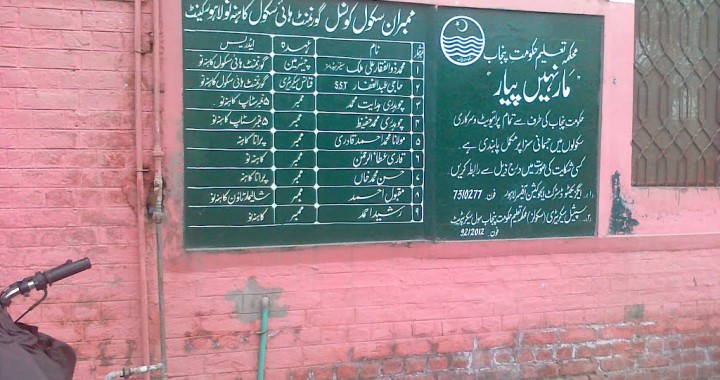 ممبران سکول کونسل گورنمنٹ ہائی سکول کاہنہ نو لاہور کینٹ
نمبر شمار نام عہدہ ایڈریس
1 محمد ذوالفقار علی ملک چیئرمین گورنمنٹ ہائی سکول کاہنہ نو
2 حاجی عبدالغفار S.S.T سیکرٹری گورنمنٹ ہائی سکول کاہنہ نو
3 چوہدری ہدایت محمد ممبر کاہنہ نو
4 چوہدری محمد حفیظ ممبر کاہنہ نو
5 مولانا محمد احمد قادری ممبر پرانا کاہنہ
6 قاری عطاء الرحمٰن ممبر کاہنہ نو
7 حسن محمد خاں ممبر پرانا کاہنہ
8 مقبول احمد ممبر شالیمار ٹاؤن کاہنہ نو
9 رشید احمد ممبر کاہنہ نو
محکمہ تعلیم حکومت پنجاب
"مار نہیں پیار"
حکومت پنجاب کی طرف سے تمام پرائیویٹ و سرکاری
سکولوں میں جسمانی سزا پر مکمل پابندی ہے۔
کسی شکایت کی صورت میں درج ذیل سے رابطہ کریں۔
1۔ ایگزیکٹو ڈسٹرکٹ ایجوکیشن آفیسر لاہور فون 7510277
2۔ سپیشل سیکریٹری (سکولز) محکمہ تعلیم حکومت پنجاب سول سیکریٹریٹ
فون 92/2012